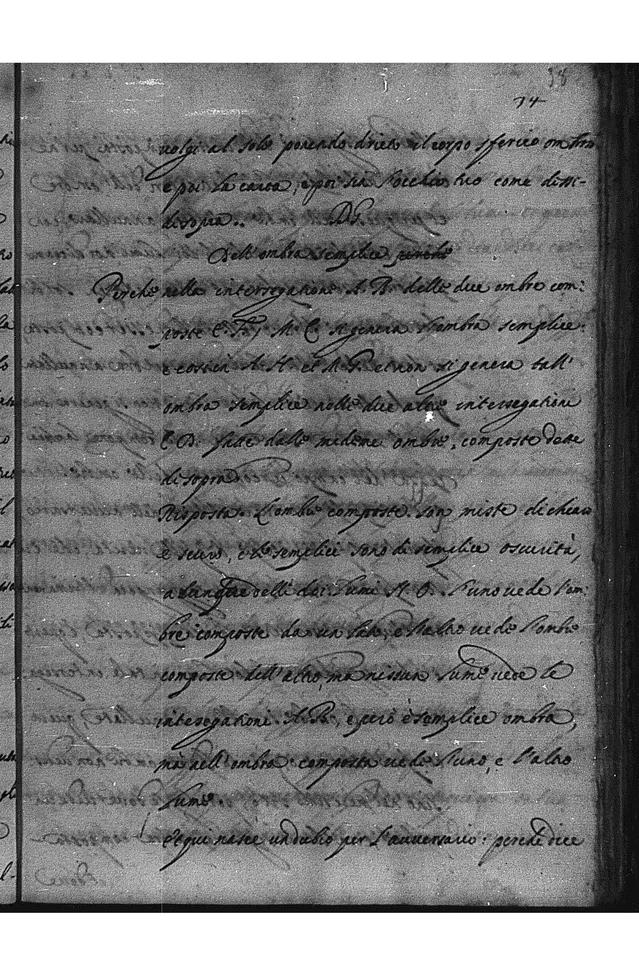 38
74
volgi al sole ponendo drieto il corpo sferico ombroso
e poi la carta, e poi sia l'occhio tuo come dissi-
di sopra..
Dell'ombra semplice perche
Perche nella intersegatione A. B. delle due ombre com:
poste E. F. M. C. si genera l'ombra semplice.
e così in A. H. et M. G. et non si genera tall'
ombra semplice nelle due altre intersegationi
C D. fatte dalle medeme ombre, composte dette
di sopra
Risposta. L'ombre composte, son miste di chiaro
e scuro, e le semplici sono di semplice oscurità,
adunque delli doi lumi N. O. l'uno vede l'om:
bre composte da un lato, e l'altro vede l'ombre
composte dell'altro, ma nissun lume vede le
intersegationi. A. B., e però è semplice ombra,
ma nell'ombra composta vede l'uno, e l'altro
lume
Et qui nasce un dubio per l'avversario: perche dice